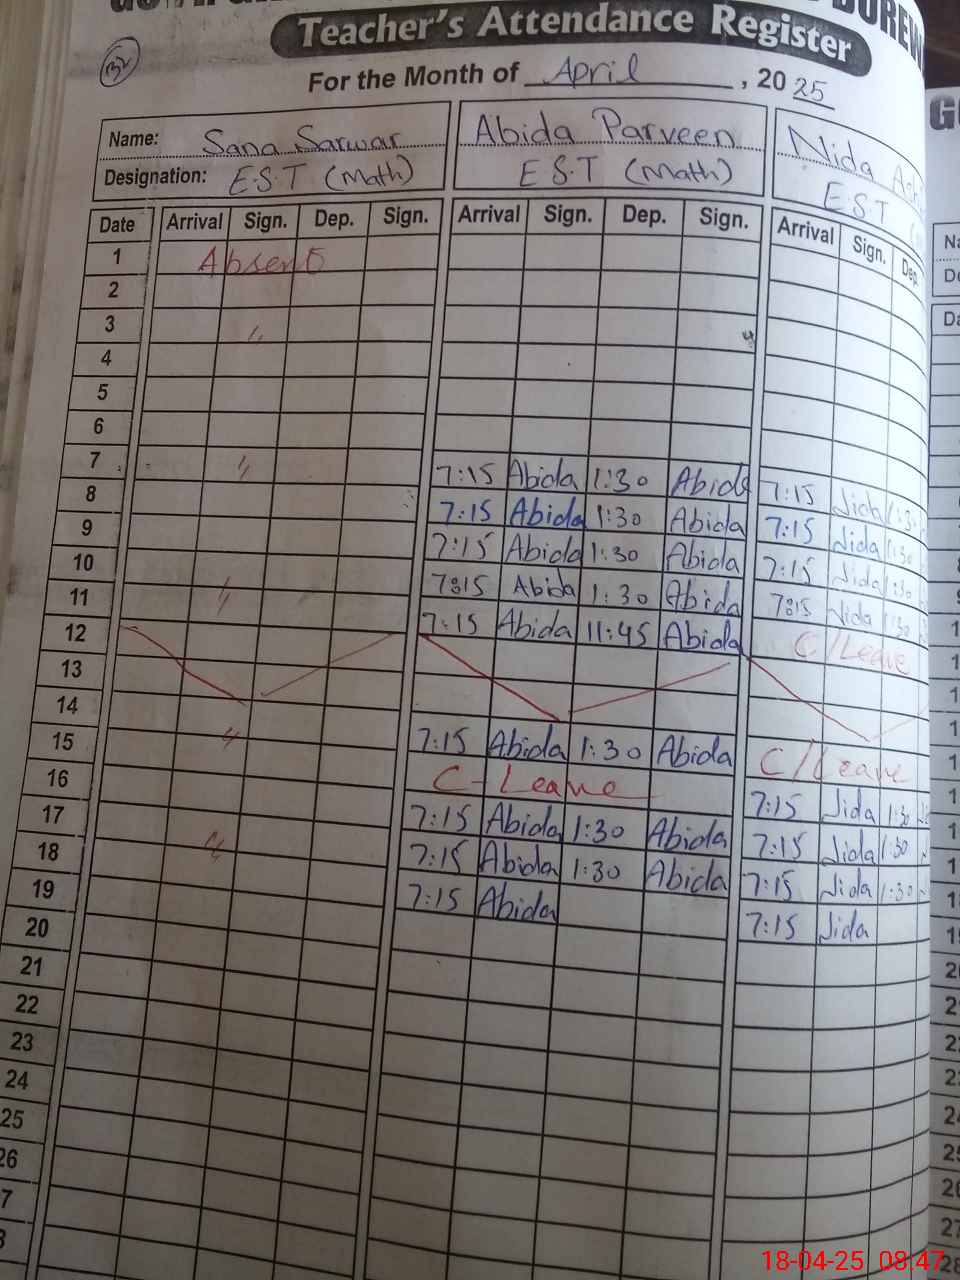 Teacher's Attendance Register
32
For the Month of April, 2025
Name: Sana Sarwar Abida Parveen Nida
Designation: E.S.T (Math) E.S.T (Math) E.S.T
Date Arrival Sign. Dep. Sign. Arrival Sign. Dep. Sign. Arrival Sign. Dep.
1 Absent
2
3 〃
4
5
6
7 〃 7:15 Abida 1:30 Abida 7:15 Nida 1:30
8 7:15 Abida 1:30 Abida 7:15 Nida 1:30
9 7:15 Abida 1:30 Abida 7:15 Nida 1:30
10 7:15 Abida 1:30 Abida 7:15 Nida 1:30
11 〃 7:15 Abida 11:45 Abida C/Leave
12
13
14 7:15 Abida 1:30 Abida C/Leave
15 〃 C-Leave 7:15 Nida 1:30
16 7:15 Abida 1:30 Abida 7:15 Nida 1:30
17 7:15 Abida 1:30 Abida 7:15 Nida 1:30
18 〃 7:15 Abida 7:15 Nida
19
20
21
22
23
24
25
26
18-04-25 08:47